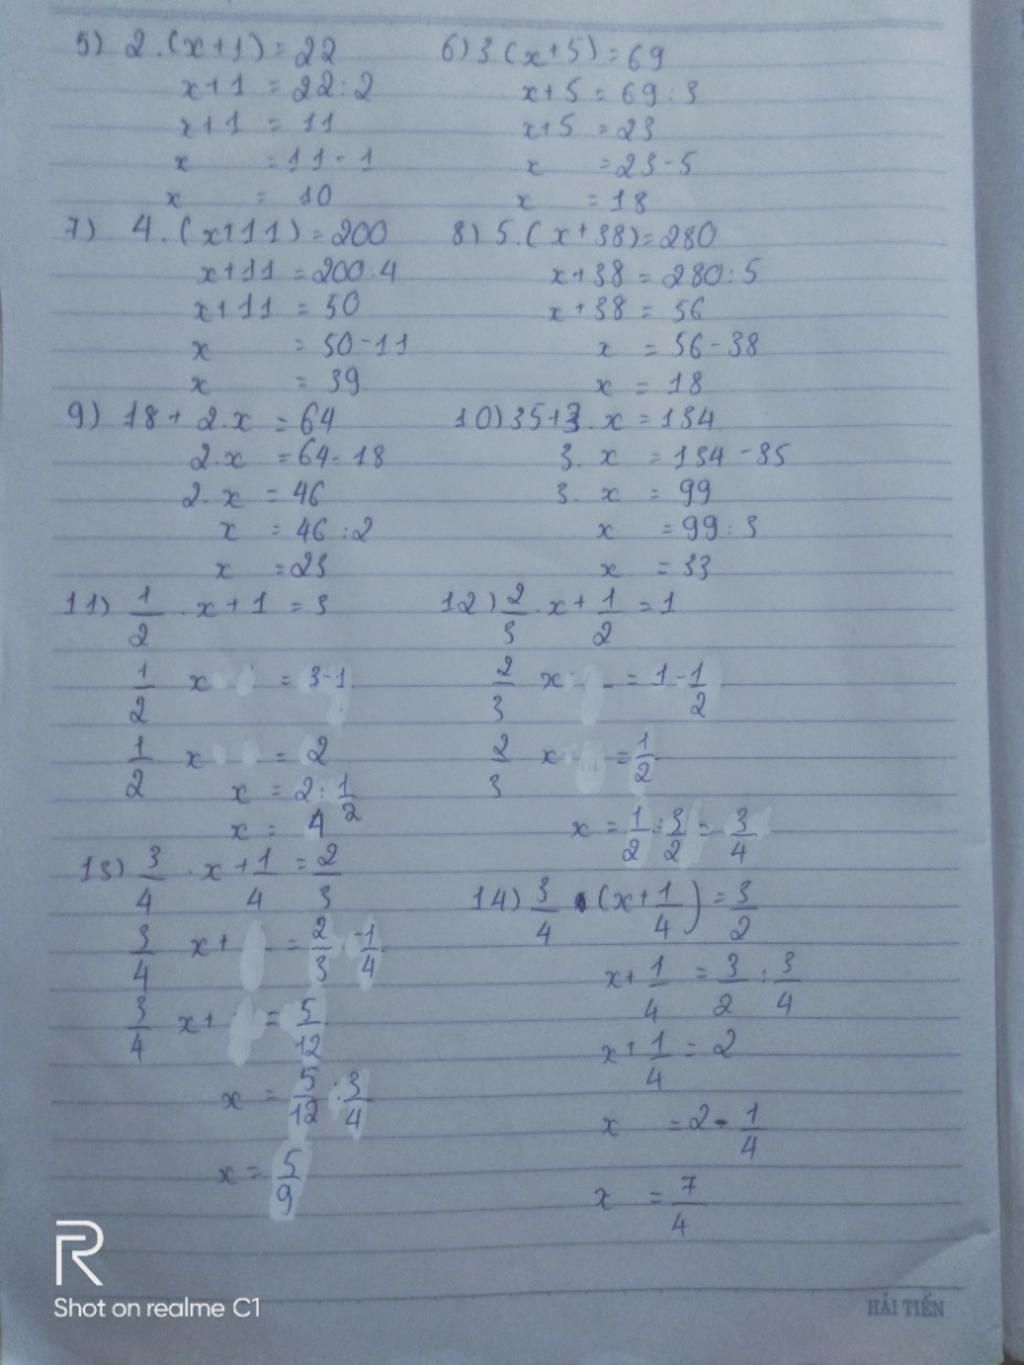 5) 2.(x+1)=22
x+1 = 22:2
x+1 = 11
x = 11-1
x = 10
6) 3(x+5)=69
x+5 = 69:3
x+5 = 23
x = 23-5
x = 18
7) 4.(x+11)=200
x+11 = 200:4
x+11 = 50
x = 50-11
x = 39
8) 5.(x+38)=280
x+38 = 280:5
x+38 = 56
x = 56-38
x = 18
9) 18+2.x = 64
2.x = 64-18
2.x = 46
x = 46:2
x = 23
10) 35+3.x = 134
3.x = 134-35
3.x = 99
x = 99:3
x = 33
11) 1/2 .x+1 = 3
1/2 x = 3-1
1/2 x = 2
x = 2:1/2
x = 4
12) 2/3 .x+1/2 = 1
2/3 x = 1-1/2
2/3 x = 1/2
x = 1/2:3/2 = 3/4
13) 3/4 .x+1/4 = 2/3
3/4 x+ = 2/3-1/4
3/4 x+ = 5/12
x = 5/12:3/4
x = 5/9
14) 3/4 .(x+1/4) = 3/2
x+1/4 = 3/2:3/4
x+1/4 = 2
x = 2-1/4
x = 7/4
R
Shot on realme C1
HẢI TIẾN